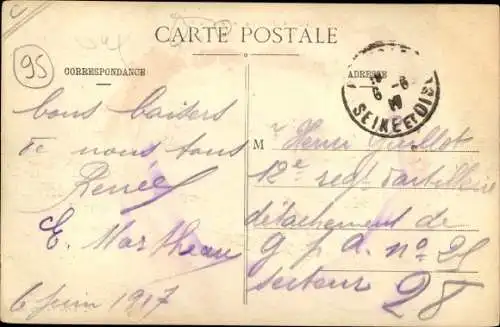 95
CARTE POSTALE
CORRESPONDANCE
ADRESSE
SEINE ET OISE
bons baisers
de nous tous
Renée
E. Martheau
6 juin 1917
M r Henri Guillot
12e regt d'artillerie
détachement de
g p a. no 25
secteur 28